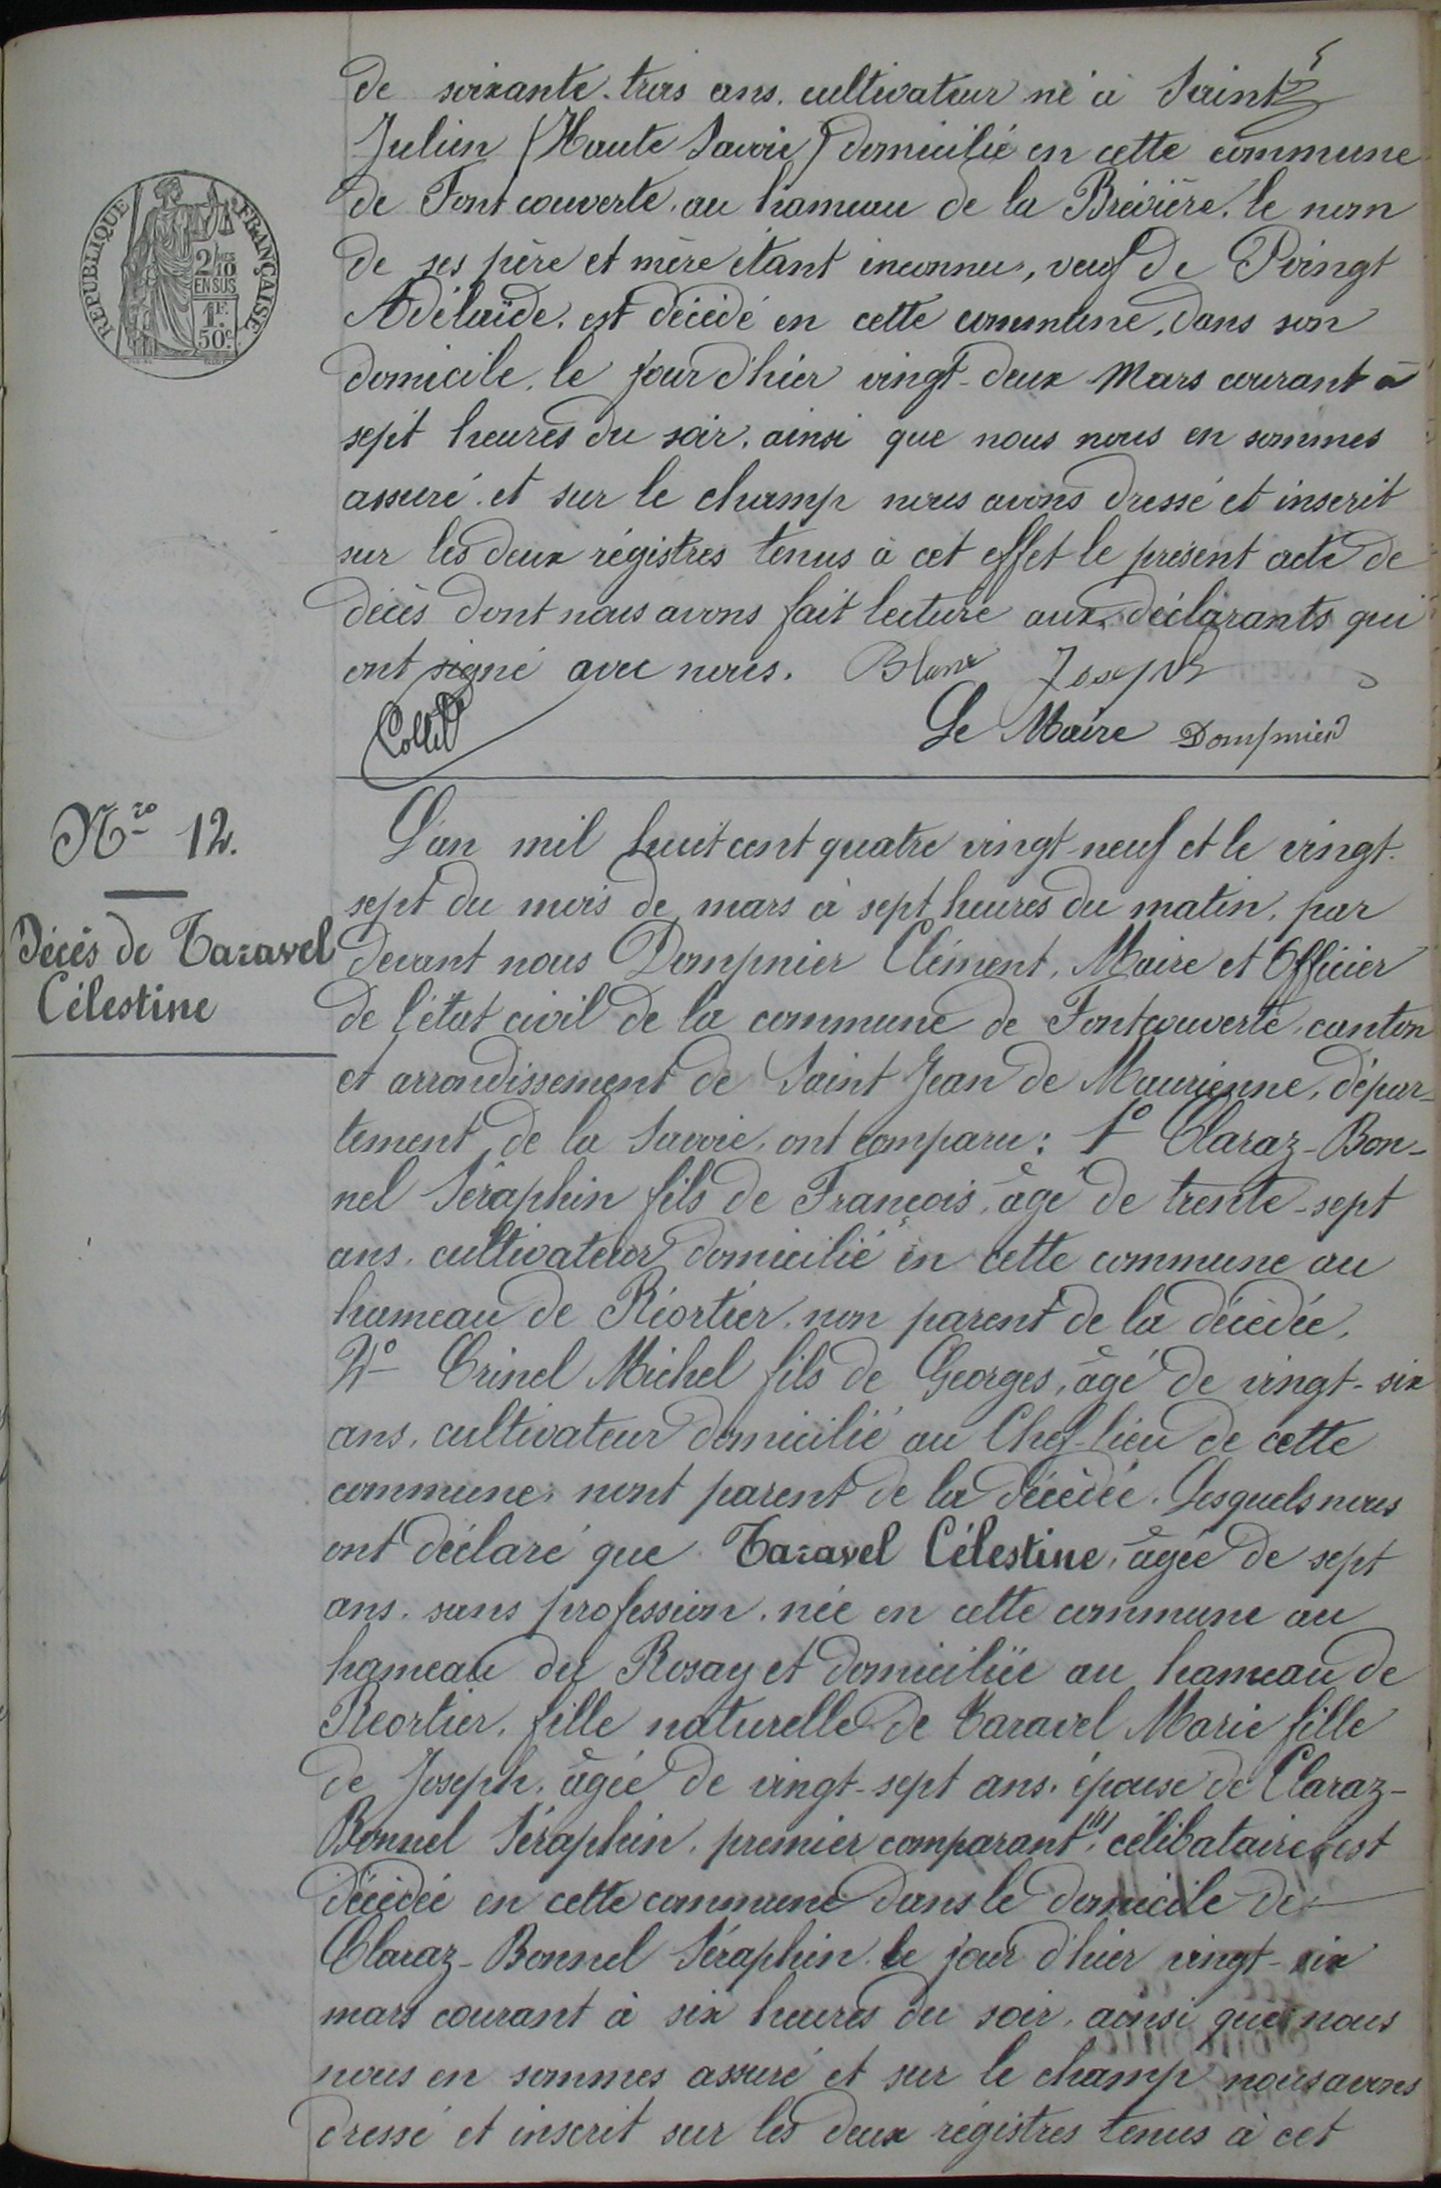 de soixante-trois ans, cultivateur né à Saint
Julien (Haute Savoie) domicilié en cette commune
de Fontcouverte, au hameau de la Brévière, le nom
de ses père et mère étant inconnu, veuf de Poingt
Adélaïde, est décédé en cette commune, dans son
domicile, le jour d'hier vingt-deux Mars courant à
sept heures du soir, ainsi que nous nous en sommes
assuré et sur le champ nous avons dressé et inscrit
sur les deux régistres tenus à cet effet le présent acte de
décès dont nous avons fait lecture aux déclarants qui
ont signé avec nous. Blanc Joseph
Collet Le Maire Dompnier
REPUBLIQUE FRANÇAISE
2/10 EN SUS
1F. 50c.
Nro 12.
Décès de Taravel
Célestine
L'an mil huit cent quatre vingt-neuf et le vingt-
sept du mois de mars à sept heures du matin, par
devant nous Dompnier Clément, Maire et Officier
de l'état civil de la commune de Fontcouverte, canton
et arrondissement de Saint Jean de Maurienne, dépar-
tement de la Savoie, ont comparu: 1° Claraz-Bon-
nel Séraphin fils de François, âgé de trente-sept
ans, cultivateur domicilié en cette commune au
hameau de Réortier, non parent de la décédée.
2° Crinel Michel fils de Georges, âgé de vingt-six
ans, cultivateur domicilié au Chef-lieu de cette
commune, nont parent de la décédée. Lesquels nous
ont déclaré que Taravel Célestine, âgée de sept
ans, sans profession, née en cette commune au
hameau du Rosay et domiciliée au hameau de
Réortier, fille naturelle de Taravel Marie fille
de Joseph, âgée de vingt-sept ans, épouse de Claraz-
Bonnel Séraphin, premier comparant, célibataire, est
décédée en cette commune dans le domicile de
Claraz-Bonnel Séraphin, le jour d'hier vingt-six
mars courant à six heures du soir, ainsi que nous
nous en sommes assuré et sur le champ nous avons
dressé et inscrit sur les deux régistres tenus à cet